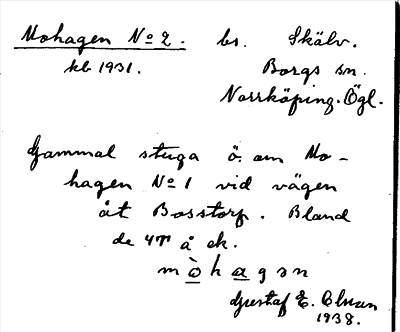 Mohagen No 2. bs. Skälv.
kb 1931. Borgs sn.
Norrköping. Ögl.
Gammal stuga ö. om Mo-
hagen No 1 vid vägen
åt Bosstorp. Bland
de 4 å ek.
mòhagən
Gustaf E. Olsson
1938.